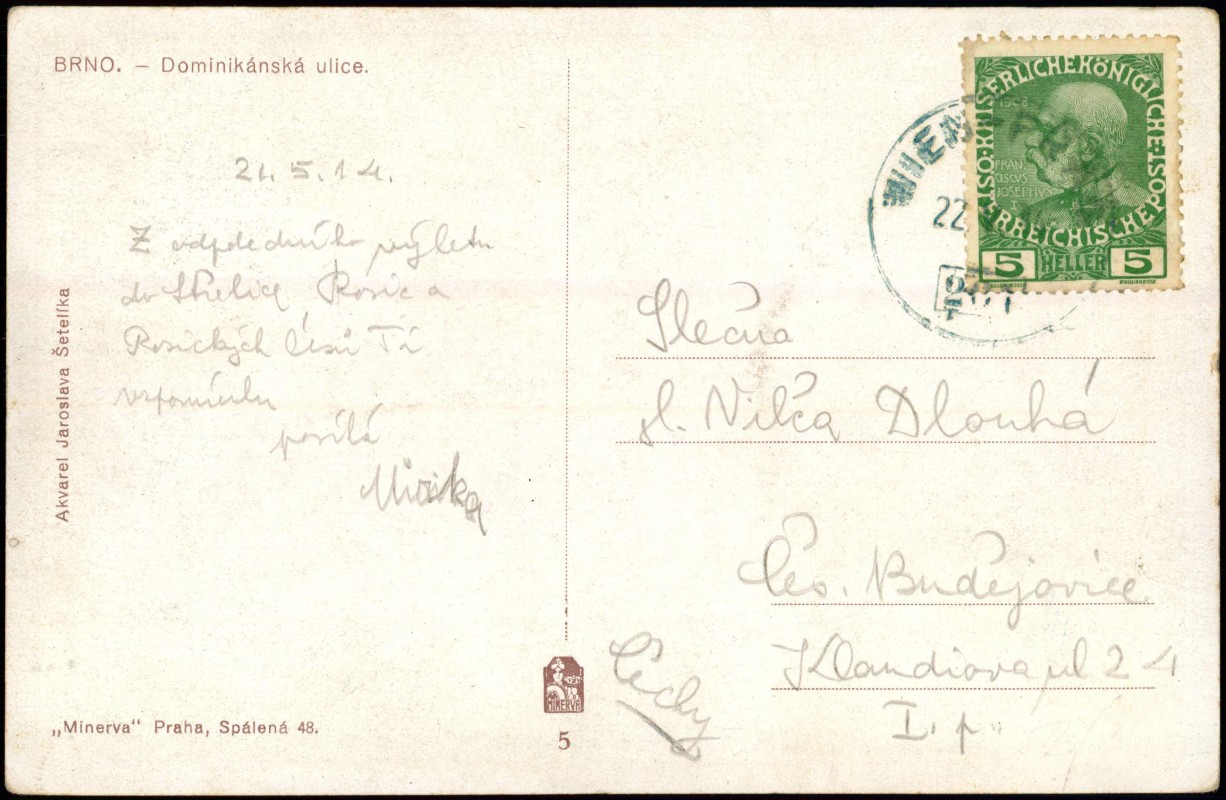 BRNO. – Dominikánská ulice.
21.5.14.
Z odpoledního výletu
do Střelic Rosic a
Rosických lesů Ti
vzpomínku
posílá
Akvarel Jaroslava Šetelíka
„Minerva“ Praha, Spálená 48.
MINERVA
5
KAISERLICHE KÖNIGLICHE
ÖSTERREICHISCHE POST
1908
FRAN
CISCUS
JOSEPHUS
I
5 HELLER 5
WIEN
22
Slečna
sl. Vilča Dlouhá
Čes. Budějovice
ul 24
I. p.
Čechy